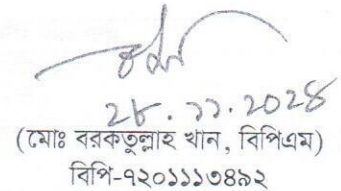 ২৮.১১.২০২৪
(মোঃ বরকতুল্লাহ খান, বিপিএম)
বিপি-৭২০১১১৩৪৯২